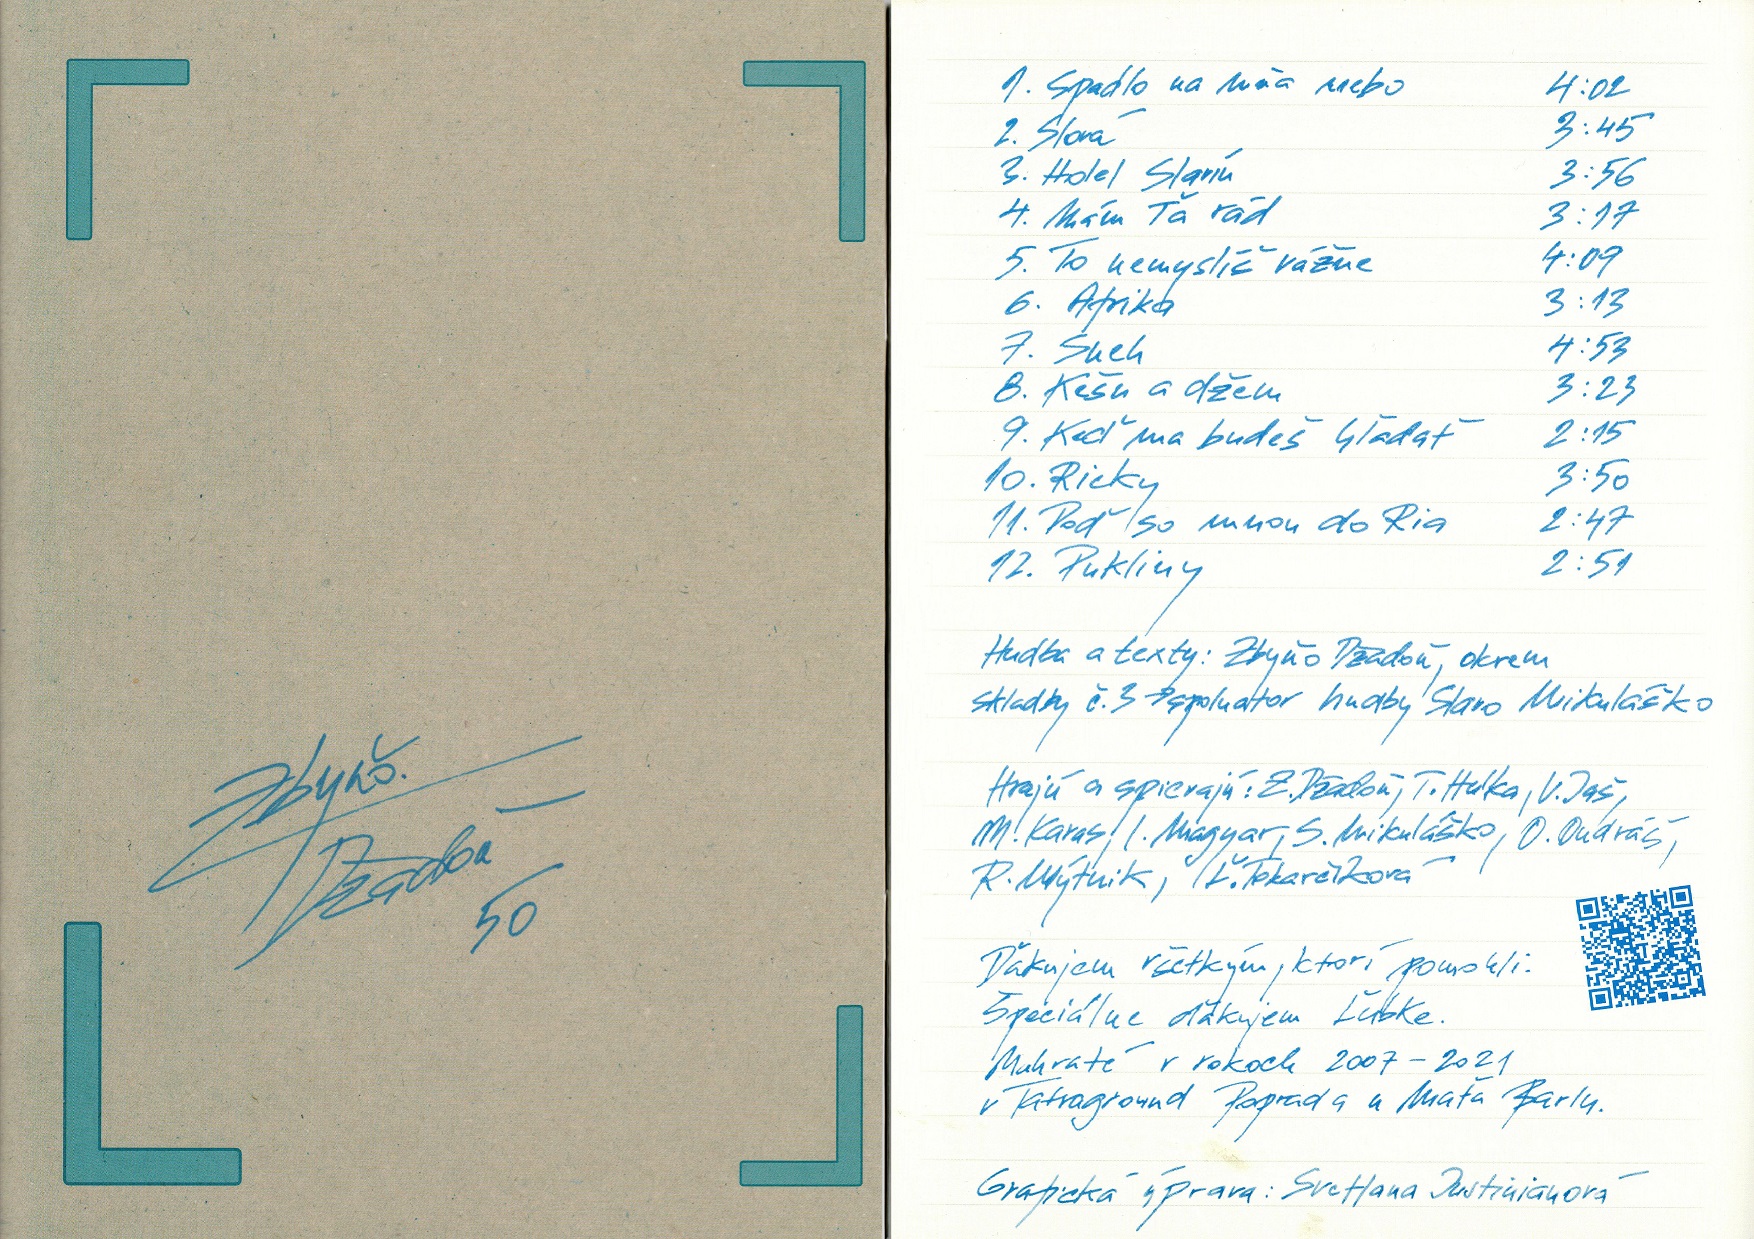 Zbyňo.
Dzadoň
50
1. Spadlo na mňa nebo 4:02
2. Slová 3:45
3. Hotel Slavín 3:56
4. Mám Ťa rád 3:17
5. To nemyslíš vážne 4:09
6. Afrika 3:13
7. Sneh 4:53
8. Kešu a džem 3:23
9. Keď ma budeš hľadať 2:15
10. Ricky 3:50
11. Poď so mnou do Ria 2:47
12. Pukliny 2:51
Hudba a texty: Zbyňo Dzadoň, okrem
skladby č.3 spoluautor hudby Slavo Mikuláško
Hrajú a spievajú: Z. Dzadoň, T. Hulka, V. Jaš,
M. Karas, I. Magyar, S. Mikuláško, O. Ondráš,
R. Mýtnik, Ľ. Tokarčíková
Ďakujem všetkým, ktorí pomohli.
Špeciálne ďakujem Ľubke.
Nahraté v rokoch 2007-2021
v Tatraground Poprad a u Maťa Barlu.
Grafická úprava: Svetlana Justinianová